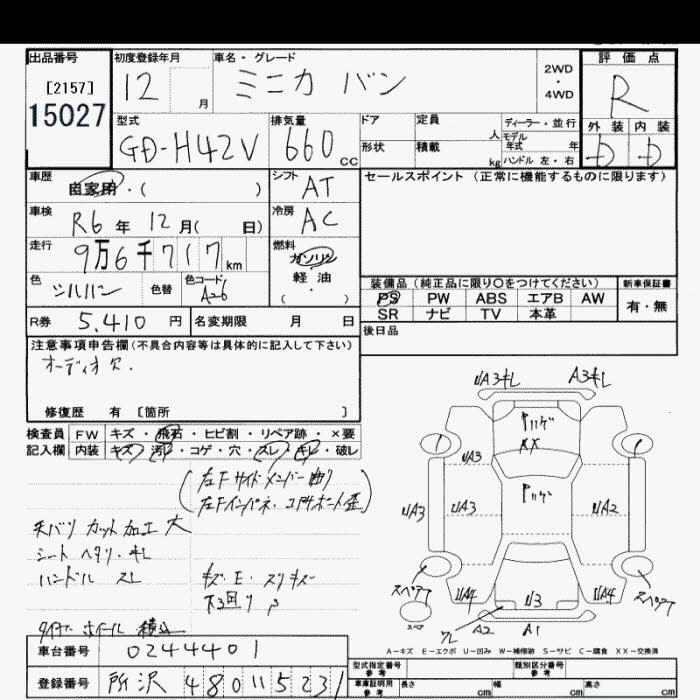 出品番号
[2157]
15027
初度登録年月
12 月
車名・グレード
ミニカ バン
2WD
・
4WD
評価点
R
外装 内装
D D
型式
GD-H42V
排気量
660 cc
ドア
形状
定員 人
積載 kg
ディーラー・並行
モデル
年式 年
ハンドル 左・右
車歴
自家用・( )
シフト
AT
車検
R6年 12月( 日)
冷房
AC
走行
9万6千717 km
燃料
ガソリン
軽・油
( )
色
シルバー
色替
色コード
A26
R券 5,410 円
名変期限 月 日
セールスポイント(正常に機能するものに限ります)
装備品(純正品に限り○をつけてください)
PS PW ABS エアB AW
SR ナビ TV 本革
新車保証書
有・無
後日品
注意事項申告欄(不具合内容等は具体的に記入して下さい)
オーディオ欠.
修復歴 有 [箇所 ]
検査員
記入欄
FW キズ・飛石・ヒビ割・リペア跡・×要
内装 キズ・汚レ・コゲ・穴・スレ・キレ・破レ
(左Fサイドメンバー曲リ
左Fインパネ・コアサポート歪)
天バリ カット加工 大
シート ヘタリ・キレ
ハンドル スレ
キズ・E・スリキズ
タイヤ ホイール 積込
車台番号 0244401
登録番号 所沢 480 い 5231
UA3キレ A3キレ
XX
UA3
UA3 UA3 UA2
スペアT UA4 U3 UA4 スペアT
スペア
ワレ A2 A1
A-キズ E-エクボ U-凹み W-補修跡 S-サビ C-腐食 XX-交換済
型式指定番号
参考
類別区分番号
参考
車庫証明用
参考
長さ cm 幅 cm 高さ cm